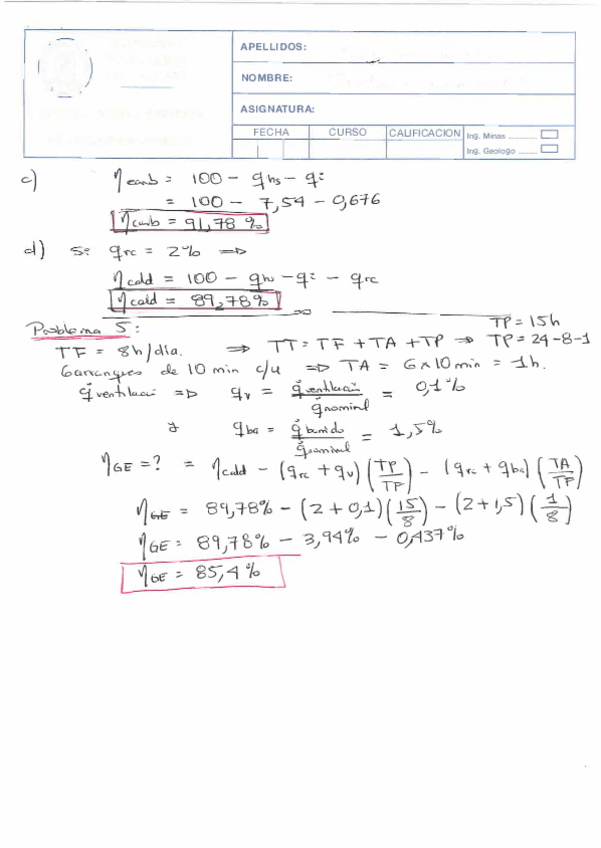 APELLIDOS:
NOMBRE:
ASIGNATURA:
FECHA CURSO CALIFICACION Ing. Minas
Ing. Geologo
c) ηcomb = 100 - qhs - qi
= 100 - 7,54 - 0,676
ηcomb = 91,78 %
d) Si qrc = 2% =>
ηcald = 100 - qhs - qi - qrc
ηcald = 89,78%
Problema 5:
TP = 15h
TF = 8h/día. => TT = TF + TA + TP => TP = 24-8-1
6 arranques de 10 min c/u => TA = 6 x 10 min = 1h.
q̇ventilació => qv = q̇ventilació / q̇nominal = 0,1%
y qba = q̇barrido / q̇nominal = 1,5%
ηGE = ? = ηcald - (qrc + qv) (TP/TF) - (qrc + qba) (TA/TF)
ηGE = 89,78% - (2 + 0,1) (15/8) - (2 + 1,5) (1/8)
ηGE = 89,78% - 3,94% - 0,437%
ηGE = 85,4%